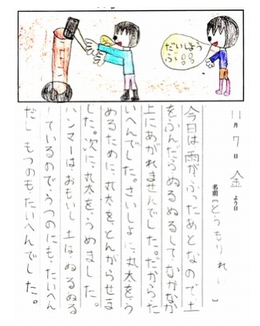 だいじよう
ぶ??
11月7日金よう日
名前
今日は雨がふたあとなので土
をふんだらぬるぬるしてなかなか
上にあがれませんでした。だからた
いへんでした。さいしょに丸太をう
めるために丸太をとんがらせま
した。次に丸太をうめました。
ハンマーはおもいし土はぬるぬる
しているのでうつのにもたいへん
だしもつのもたいへんでした。